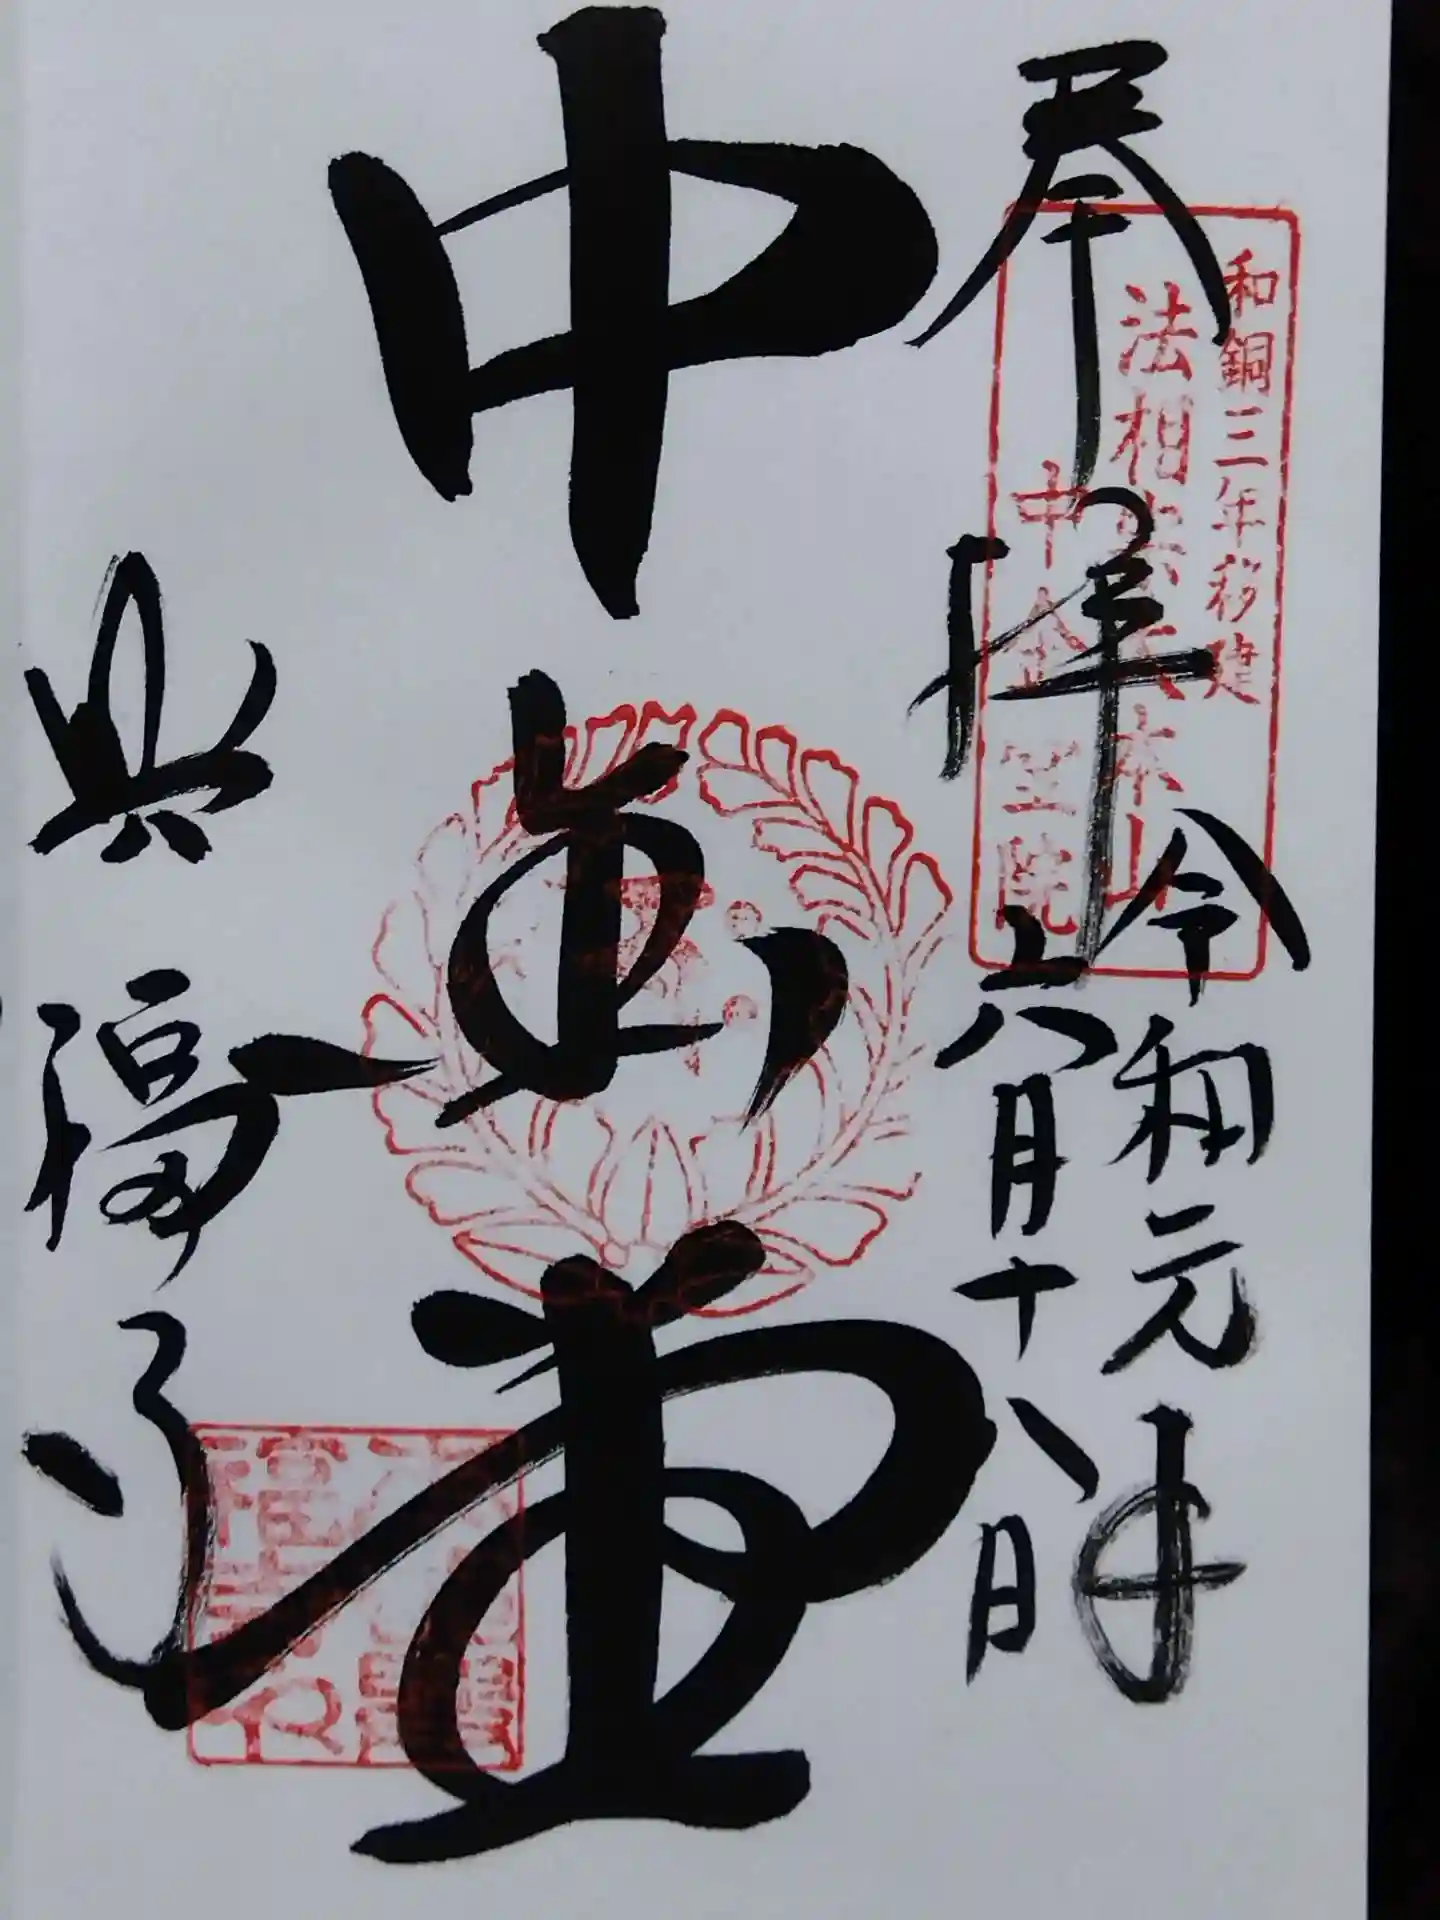 奉拝
和銅三年移建
法相宗大本山
中金堂院
令和元年
六月十八日
中金堂
興福寺